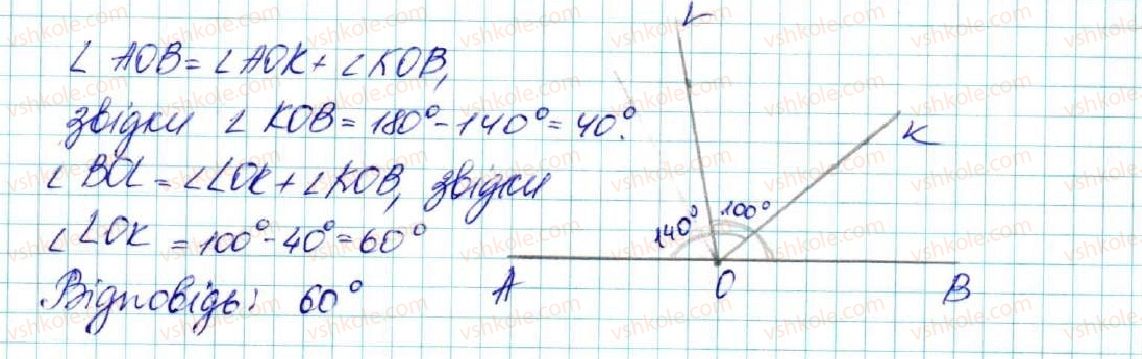 ∠AOB = ∠AOK + ∠KOB,
звідки ∠KOB = 180° - 140° = 40°.
∠BOL = ∠LOK + ∠KOB, звідки
∠LOK = 100° - 40° = 60°
Відповідь: 60°
L
K
140°
100°
A
O
B
vshkole.com